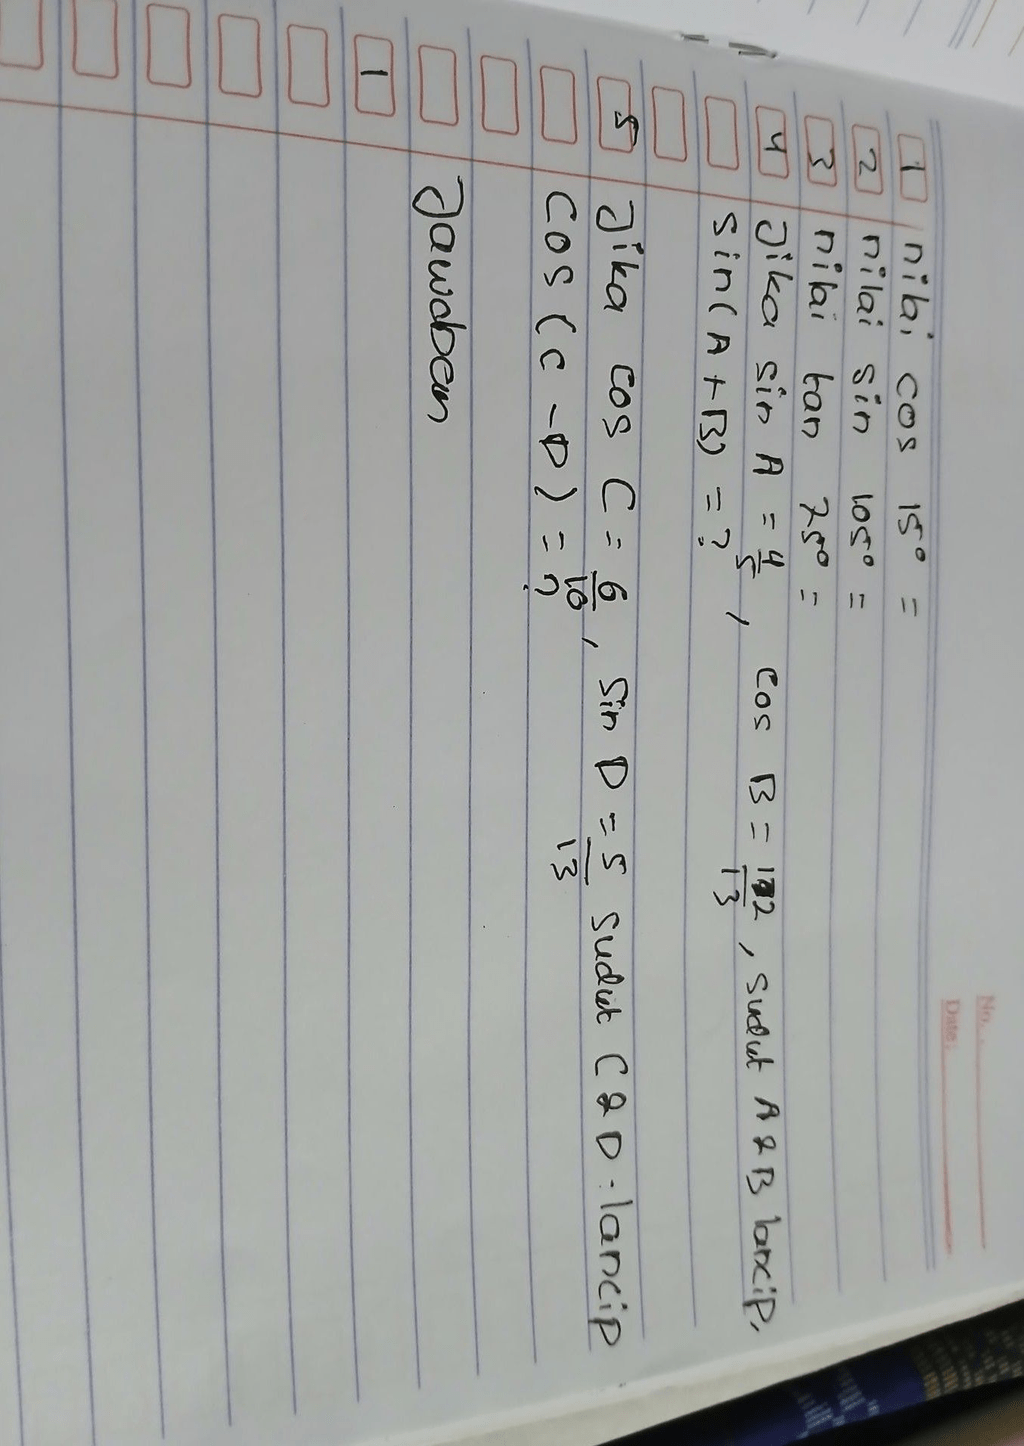 No.
Date:
1 nilai cos 15° =
2 nilai sin 105° =
3 nilai tan 75° =
4 Jika sin A = 4/5, cos B = 12/13, sudut A & B lancip,
sin(A+B) = ?
5 Jika cos C = 6/10, sin D = 5/13 sudut C & D lancip
cos(C-D) = ?
Jawaban
1